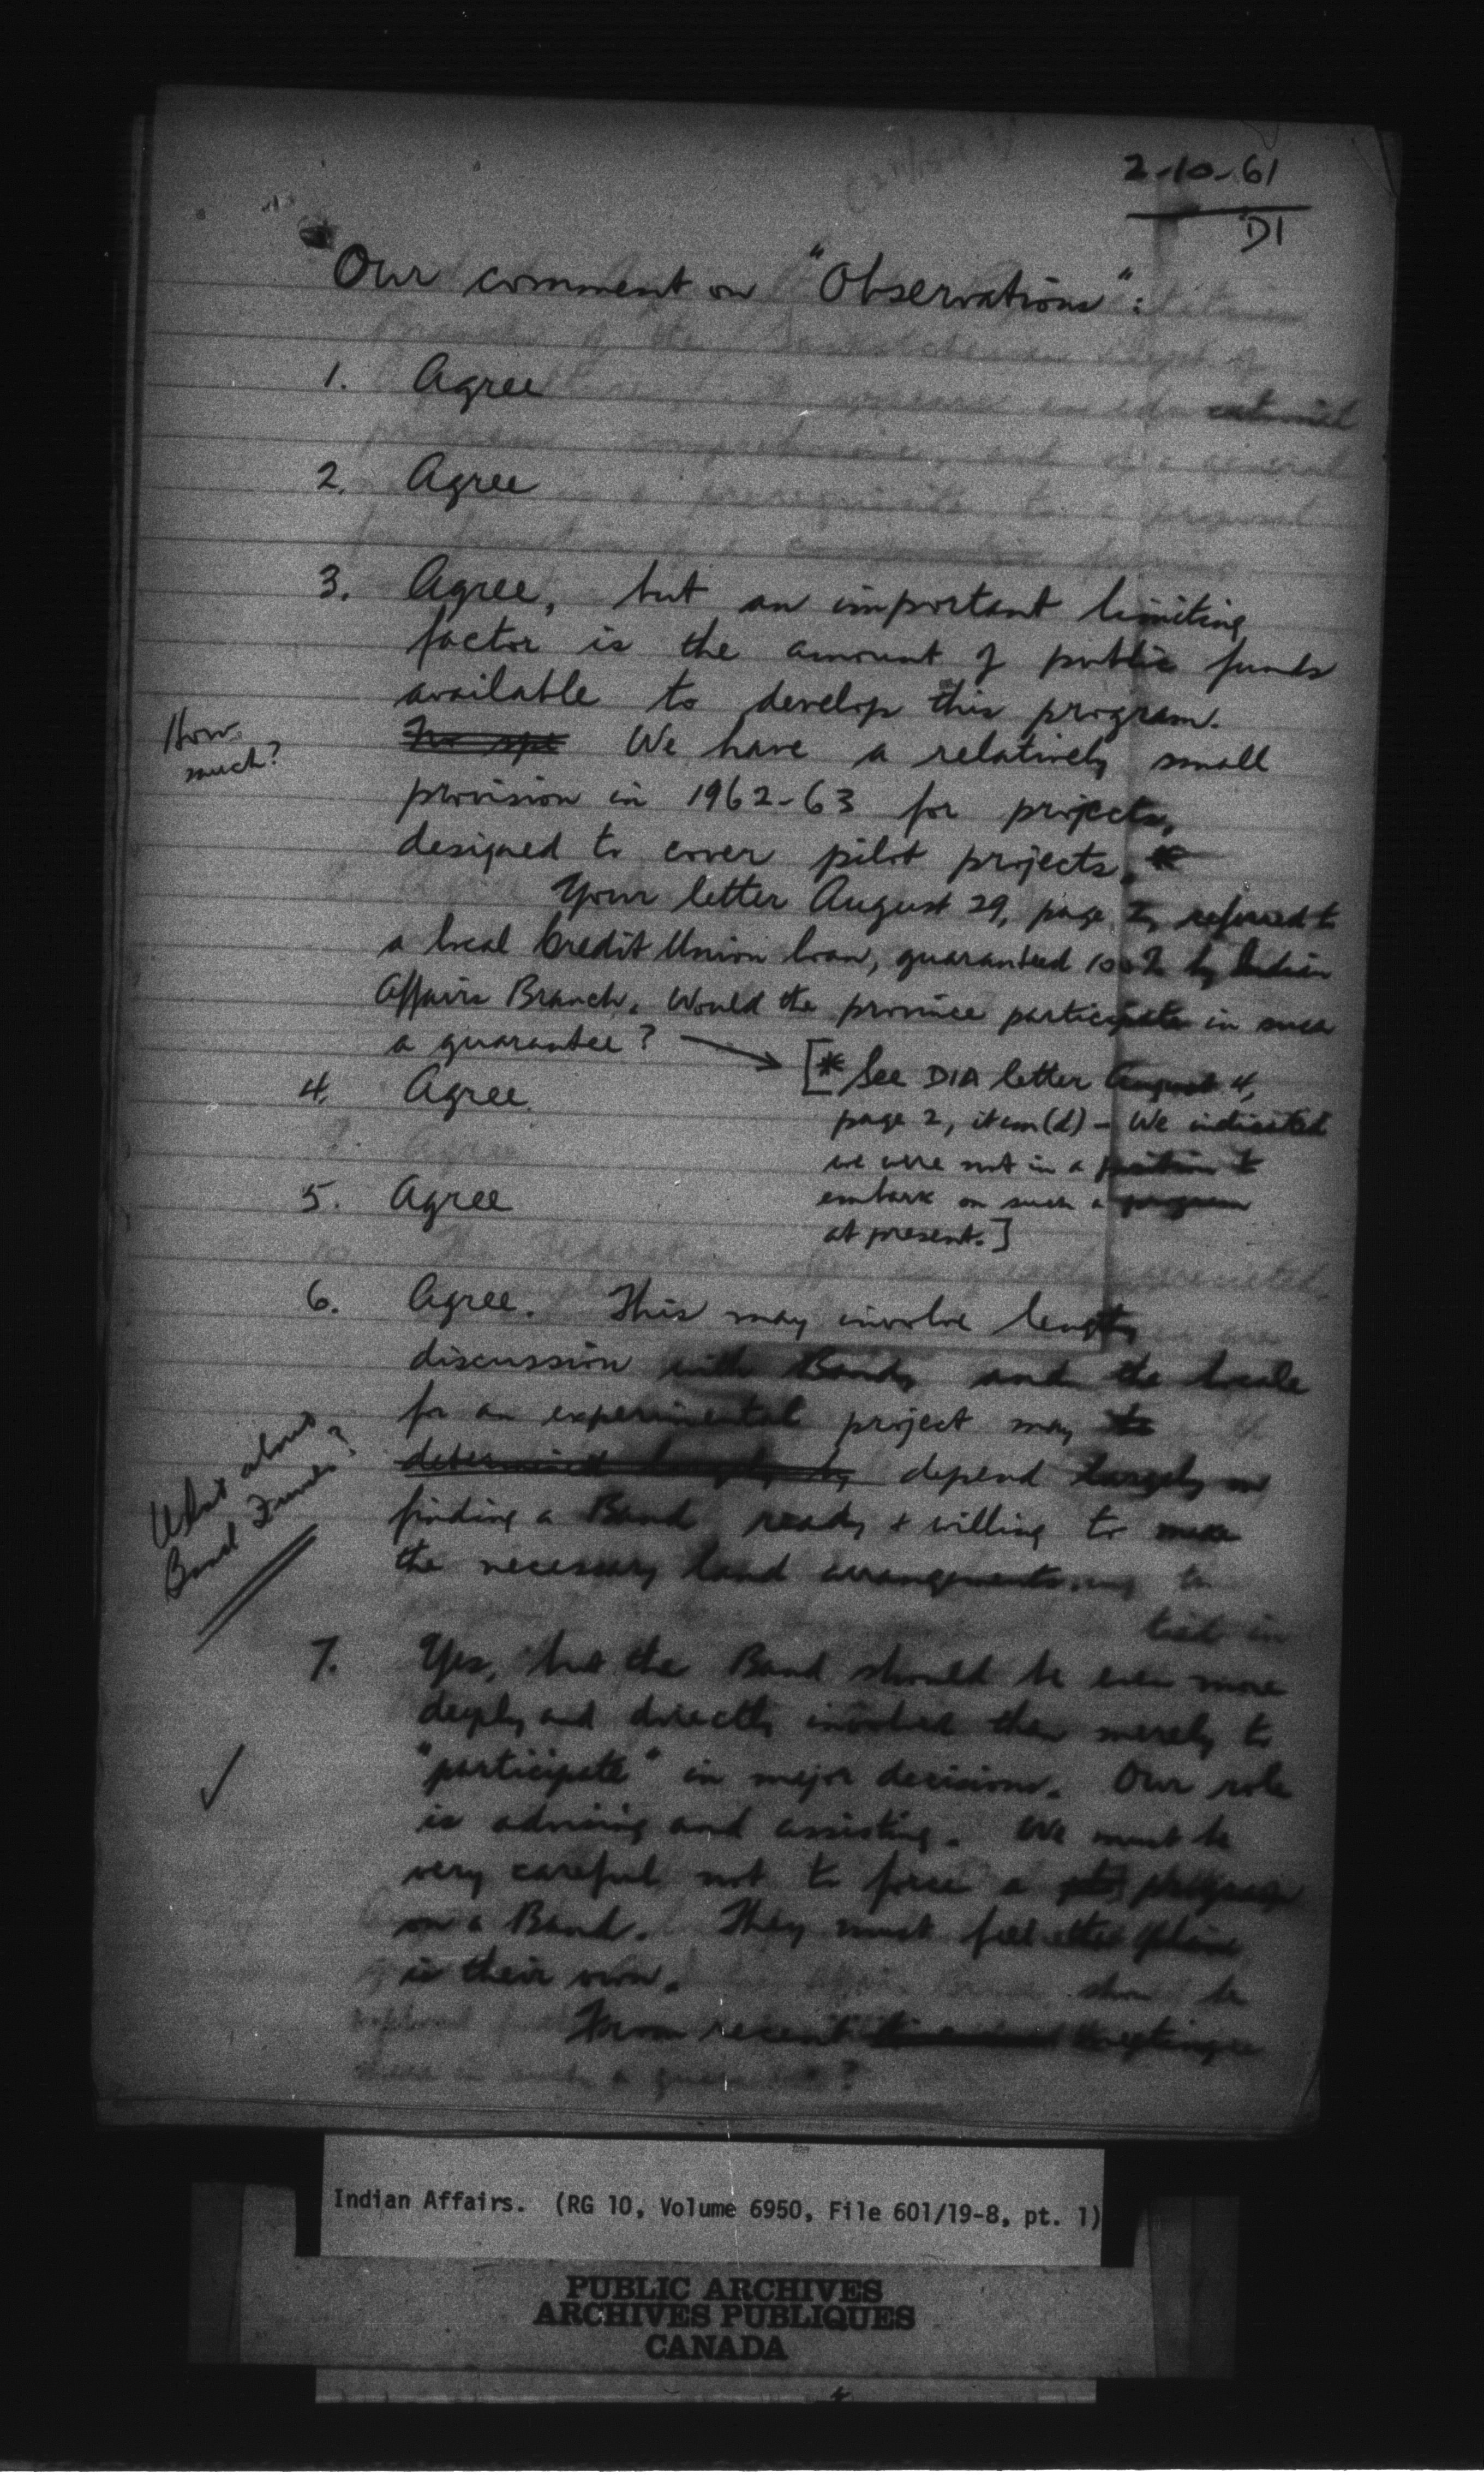 2-10-61
D1
Our comment on "Observations":
1. Agree
2. Agree
3. Agree, but an important limiting
factor is the amount of public funds
available to develop this program.
How much?
We have a relatively small
provision in 1962-63 for projects,
designed to cover pilot projects. *
Your letter August 29, page 2, referred to
a local Credit Union loan, guaranteed 100% by Indian
Affairs Branch. Would the province participate in such
a guarantee? →
[* See DIA letter August 4,
page 2, item (d) - We indicated
we were not in a position to
embark on such a program
at present.]
4. Agree.
5. Agree
6. Agree. This may involve lengthy
discussion with Bands, and the locale
for an experimental project may
determined largely by depend largely on
finding a Band ready & willing to make
the necessary land arrangements.
What about
Band Funds?
tied in
7. Yes, but the Band should be even more
deeply and directly involved than merely to
"participate" in major decisions. Our role
is advising and assisting. We must be
very careful not to force a program
on a Band. They must feel the plan
is their own.
From recent
Indian Affairs. (RG 10, Volume 6950, File 601/19-8, pt. 1)
PUBLIC ARCHIVES
ARCHIVES PUBLIQUES
CANADA